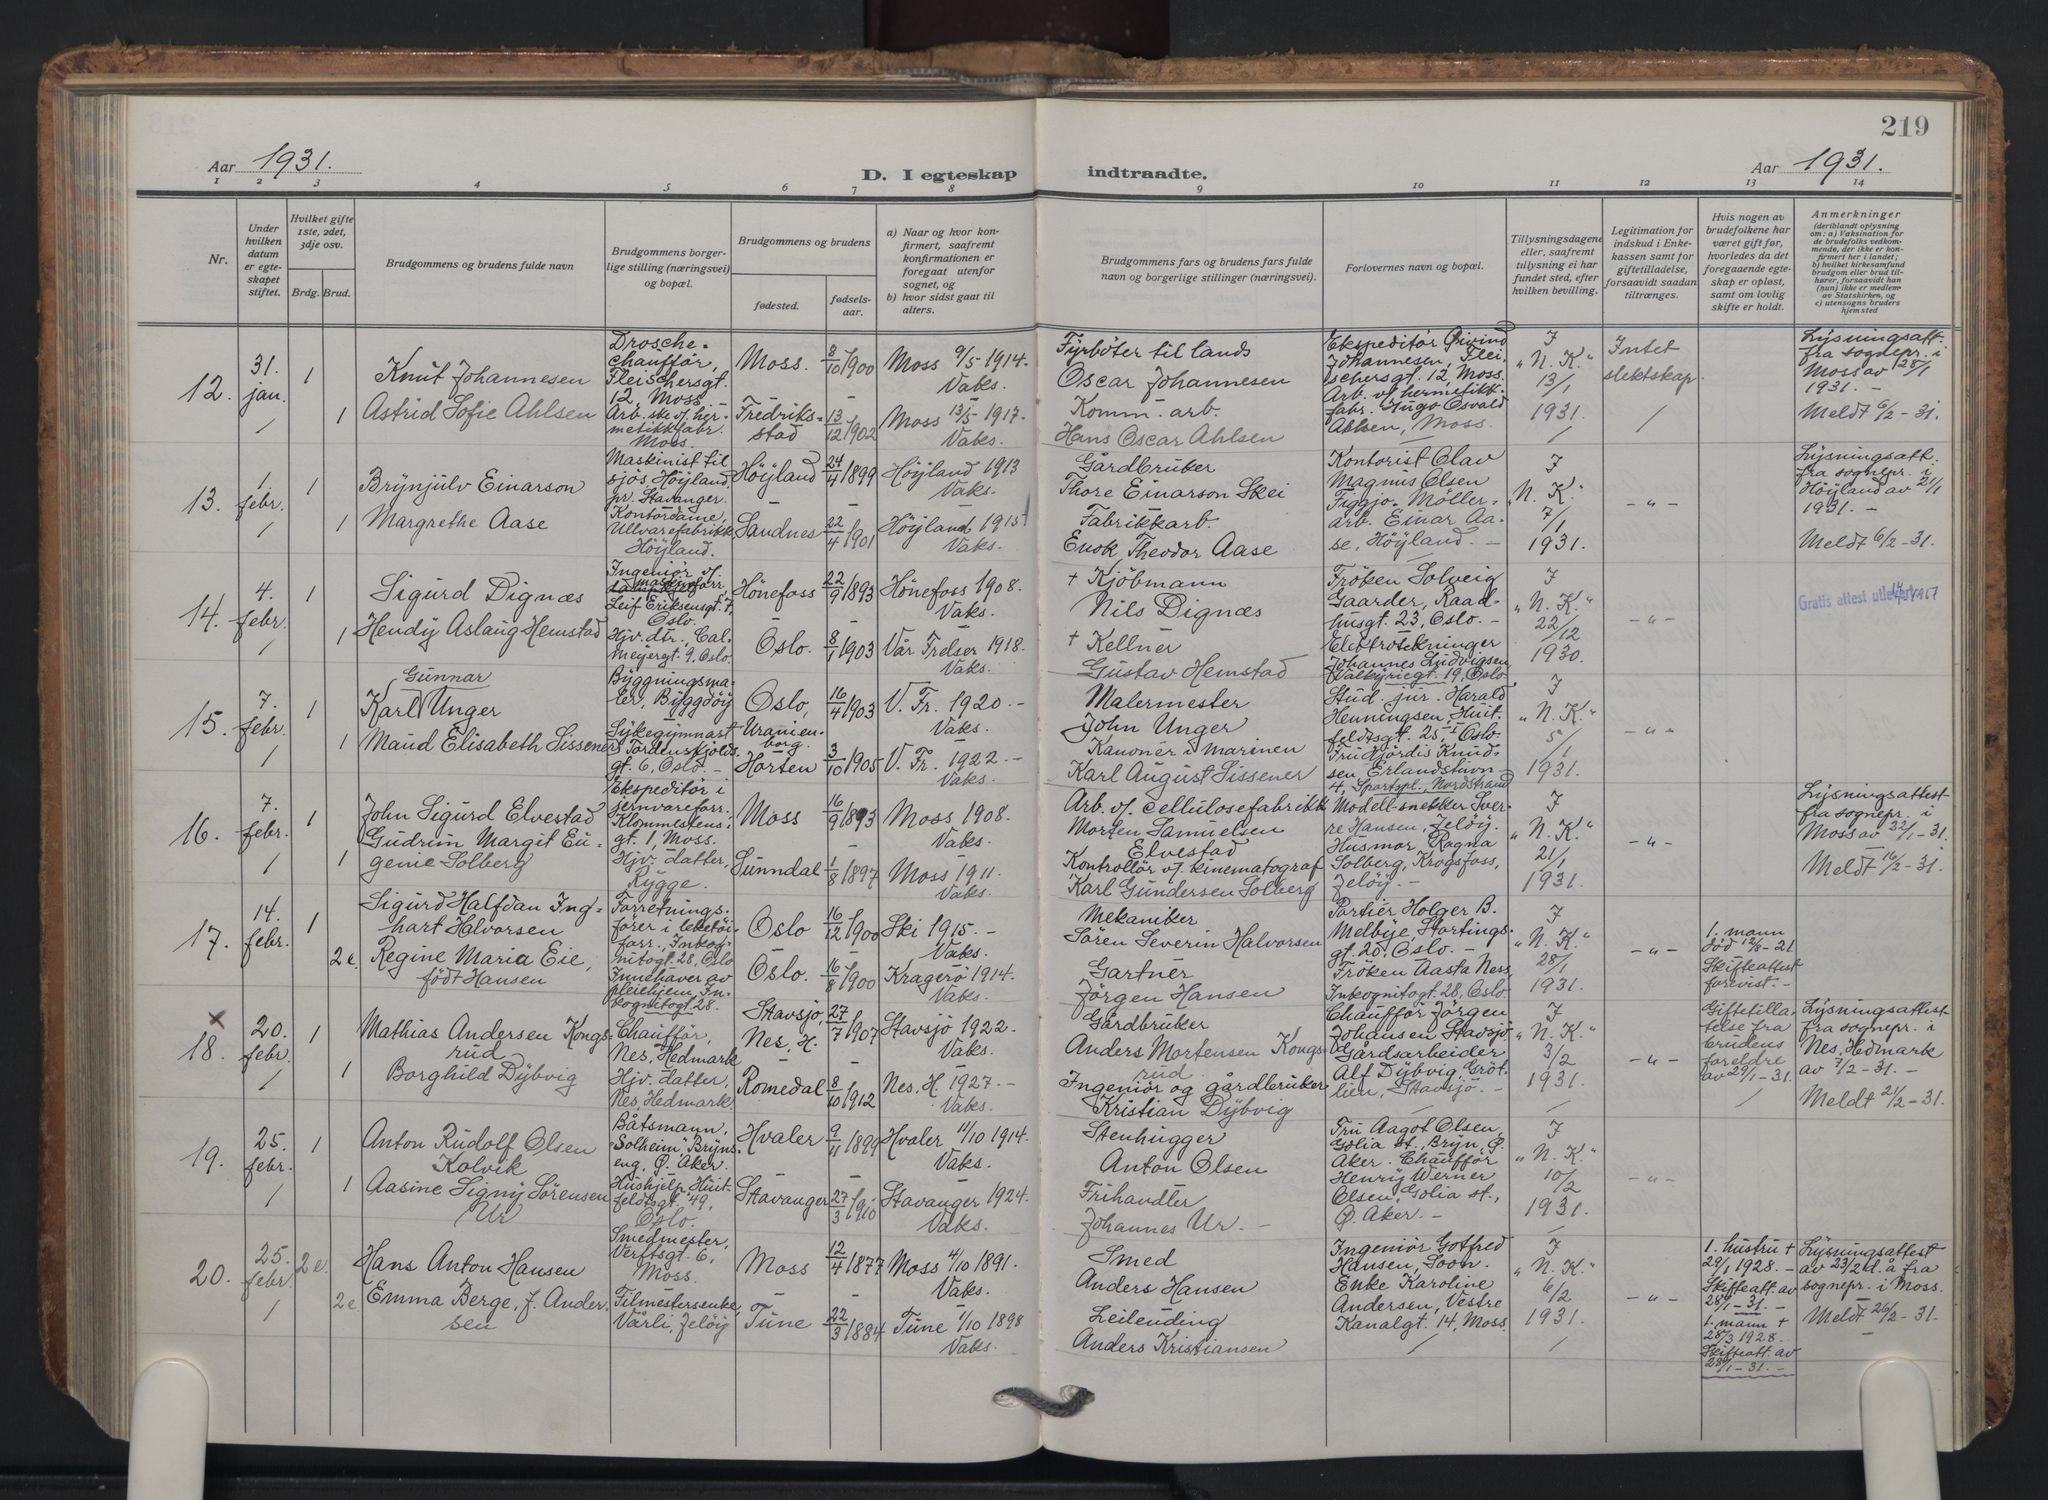 219
Aar 1931.
D. I egteskap indtraadte.
Aar 1931.
1 2 3 4 5 6 7 8 9 10 11 12 13 14
Nr.
Under hvilken datum er egteskapet stiftet.
Hvilket gifte 1ste, 2det, 3dje osv.
Brdg. Brud.
Brudgommens og brudens fulde navn
Brudgommens borgerlige stilling (næringsvei) og bopæl.
Brudgommens og brudens
fødested.
fødselsaar.
a) Naar og hvor konfirmert, saafremt konfirmationen er foregaat utenfor sognet, og
b) hvor sidst gaat til alters.
Brudgommens fars og brudens fars fulde navn og borgerlige stillinger (næringsvei).
Forlovernes navn og bopæl.
Tillysningsdagene eller, saafremt tillysning ei har fundet sted, efter hvilken bevilling.
Legitimation for indskud i Enkekassen samt for giftetilladelse, forsaavidt saadan tiltrænges.
Hvis nogen av brudefolkene har været gift før, hvorledes da det foregaaende egteskap er opløst, samt om lovlig skifte er holdt.
Anmerkninger
(deriblandt oplysning om: a) Vaksination for de brudefolks vedkommende, der ikke er konfirmert her i landet;
b) hvilket kirkesamfund brudgom eller brud tilhører, forsaavidt han (hun) ikke er medlem av Statskirken, og
c) utensogns bruders hjemsted
12. 31. jan. 1
Knut Johannesen
Drosche-chauffør, Fleischersgt. 12, Moss
Moss. 8/10 1900
Moss 9/5 1914. Vaks.
Fyrbøter til lands
Oscar Johannesen
Ekspeditør Øivind Johannesen, Fleischersgt. 12, Moss.
Arb. v/ hermetikkfabr. Hugo Osvald Ahlsen, Moss.
I "N. K." 13/1 1931.
Intet slektskap.
Lysningsatt. fra sognepr. i Moss av 28/1 1931. -
Meldt 6/2-31.
1 Astrid Sofie Ahlsen
Arb. ske v/ hermetikkfabr. Moss.
Fredrikstad 13/12 1902
Moss 13/5 1917. Vaks.
Komm. arb.
Hans Oscar Ahlsen
13. 1. febr. 1
Brynjulv Einarson
Maskinist til sjøs, Høyland pr. Stavanger.
Høyland 24/4 1899
Høyland 1913 Vaks.
Gårdbruker
Thore Einarson Skei
Kontorist Olav Magnus Olsen Figgjo. Møllerarb. Einar Aase, Høyland. -
I "N. K." 7/1 1931.
- " -
Lysningsatt. fra sognepr. i Høyland av 21/1 1931. -
Meldt 6/2-31.
1 Margrethe Aase
Kontordame, Ullvarefabrikk Høyland.
Sandnes 22/4 1901
Høyland 1915 Vaks.
Fabrikkarb.
Enok Theodor Aase
14. 4. febr. 1
Sigurd Dignæs
Ingeniør v. maskinforr., Leif Eriksensgt. 7, Oslo.
Hønefoss 22/9 1893
Hønefoss 1908. Vaks.
+ Kjøbmann
Nils Dignæs
Frøken Solveig Gaarder, Raadhusgt. 23, Oslo. -
Elektrotekninger Johannes Ludvigsen, Valkyriegt. 19, Oslo
I "N. K." 22/12 1930.
- " -
Gratis attest utlevert
1 Hendy Aslaug Hemstad
Hjv. dtr. Calmeyergt. 9, Oslo.
Oslo. 8/1 1903
Vår Frelser 1918. Vaks.
+ Kellner
Gustav Hemstad
15. 7. febr. 1
Karl Gunnar Unger
Bygningsmaler, Bygdøy
Oslo, Uranienborg. 16/4 1903
V. Fr. 1920. - Vaks.
Malermester
John Unger
Stud. jur. Harald Henningsen, Huitfeldtsgt. 25, Oslo.
Fru Hjørdis Knudsen, Erlandstuvn. 4, Sportspl., Nordstrand
I "N. K." 5/1 1931.
- " -
1 Maud Elisabeth Sissener
Sykegymnast Tordenskjoldsgt. 6, Oslo. -
Horten 3/10 1905
V. Fr. 1922. - Vaks.
Kanoner i Marinen
Karl August Sissener
16. 7. febr. 1
John Sigurd Elvestad
Ekspeditør i jernvareforr. Klommestensgt. 1, Moss.
Moss 16/9 1893
Moss 1908. Vaks.
Arb. v. cellulosefabrikk
Morten Samuelsen Elvestad
Modellsnekker Sverre Hansen, Jeløy.
Husmor Ragna Solberg, Krogsfoss, Jeløy. -
I "N. K." 21/1 1931.
- " -
Lysningsattest fra sognepr. i Moss av 22/1-31.
Meldt 16/2-31.
1 Gudrun Margit Eugenie Solberg
Hjv. datter, Rygge.
Sunndal 1/8 1897
Moss 1911. Vaks.
Kontrollør v. kinematograf
Karl Gundersen Solberg
17. 14. febr. 1
Sigurd Halfdan Inghart Halvorsen
Forretningsfører i leketøiforr., Inkognitogt. 28, Oslo
Oslo 16/12 1900
Ski 1915. - Vaks.
Mekaniker
Søren Severin Halvorsen
Portier Holger B. Melbye, Stortingsgt. 20, Oslo. -
Frøken Aasta Ness, Inkognitogt. 28, Oslo.
I "N. K." 28/1 1931.
- " -
1. mann død 12/8-21 Skifteattest forevist. -
2 e. Regine Maria Eie, født Hansen
Innehaver av pleiehjem, Inkognitogt 28.
Oslo. 16/8 1900
Kragerø 1914. Vaks.
Gartner
Jørgen Hansen
x
18. 20. febr. 1
Mathias Andersen Kongsrud
Chauffør, Nes, Hedmark
Stavsjø, Nes, H. 27/7 1907
Stavsjø 1922. Vaks.
Gårdbruker
Anders Mortensen Kongsrud
Chauffør Jørgen Johansen Stavsjø
Gårdsarbeider Alf Dybvig, Grøtlien, Stavsjø. -
I "N. K." 3/2 1931.
- " -
Giftetillatelse fra brudens foreldre av 29/1-31.
Lysningsattest fra sognepr. i Nes, Hedmark av 7/2-31. -
Meldt 21/2-31.
1 Borghild Dybvig
Hjv. datter, Nes, Hedmark.
Romedal 8/10 1912
Nes. H. 1927. - Vaks.
Ingeniør og gårdbruker
Kristian Dybvig
19. 25. febr. 1
Anton Rudolf Olsen Kolvik
Båtsmann, "Solheim" Brynseng, Ø. Aker.
Hvaler 9/11 1899
Hvaler 11/10 1914. Vaks.
Stenhugger
Anton Olsen
Fru Aagot Olsen, Golia st., Bryn, Ø. Aker. Chauffør Henry Werner Olsen, Golia st., Ø. Aker. -
I "N. K." 10/2 1931.
- " -
1 Aasine Signy Sørensen Ur
Hushjelp, Huitfeldtsgt 49, Oslo.
Stavanger 27/3 1910
Stavanger 1924. Vaks.
Frihandler
Johannes Ur. -
20. 25. febr. 2 e.
Hans Anton Hansen
Smedmester, Verftsgt. 6, Moss.
Moss 12/4 1877
Moss 4/10 1891. Vaks.
Smed
Anders Hansen
Ingeniør Gotfred Hansen, Soon.
Enke Karoline Andersen, Vestre Kanalgt. 14, Moss.
I "N. K." 6/2 1931.
- " -
1. hustru + 29/1 1928. - Skifteatt. av 28/1-31. -
1. mann + 28/3 1928. Skifteatt. av 28/1-31. -
Lysningsattest av 23/2 d. å fra sognepr. i Moss.
Meldt 26/2-31.
2 e. Emma Berge, f. Andersen
Filmestersenke, Vårli, Jeløy
Tune 22/3 1884
Tune 1/10 1898 Vaks.
Leilending
Anders Kristiansen